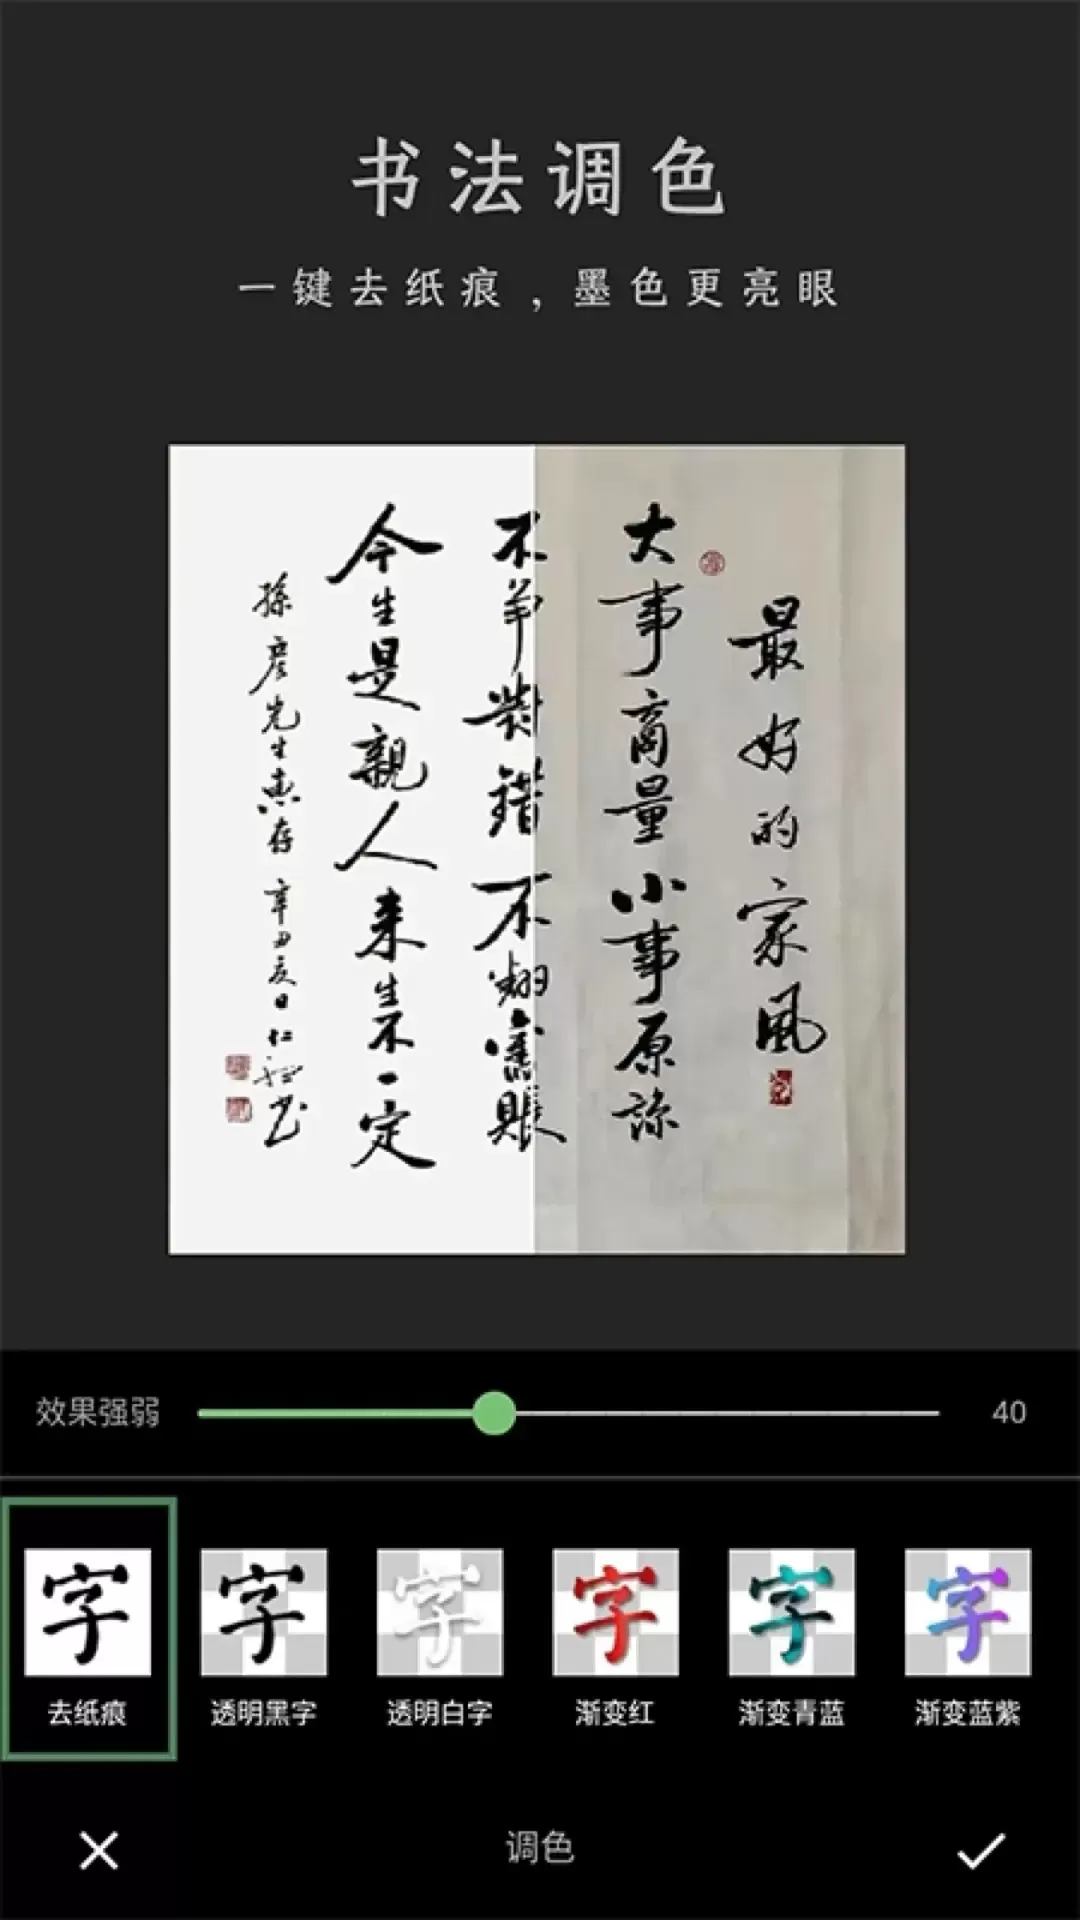 书法调色
一键去纸痕，墨色更亮眼
最好的家风
大事商量小事原谅
不争對錯不翻舊賬
今生是親人来生不一定
孫彦先生惠存 辛丑夏日 仁
效果强弱
40
字
字
字
字
字
字
去纸痕
透明黑字
透明白字
渐变红
渐变青蓝
渐变蓝紫
调色